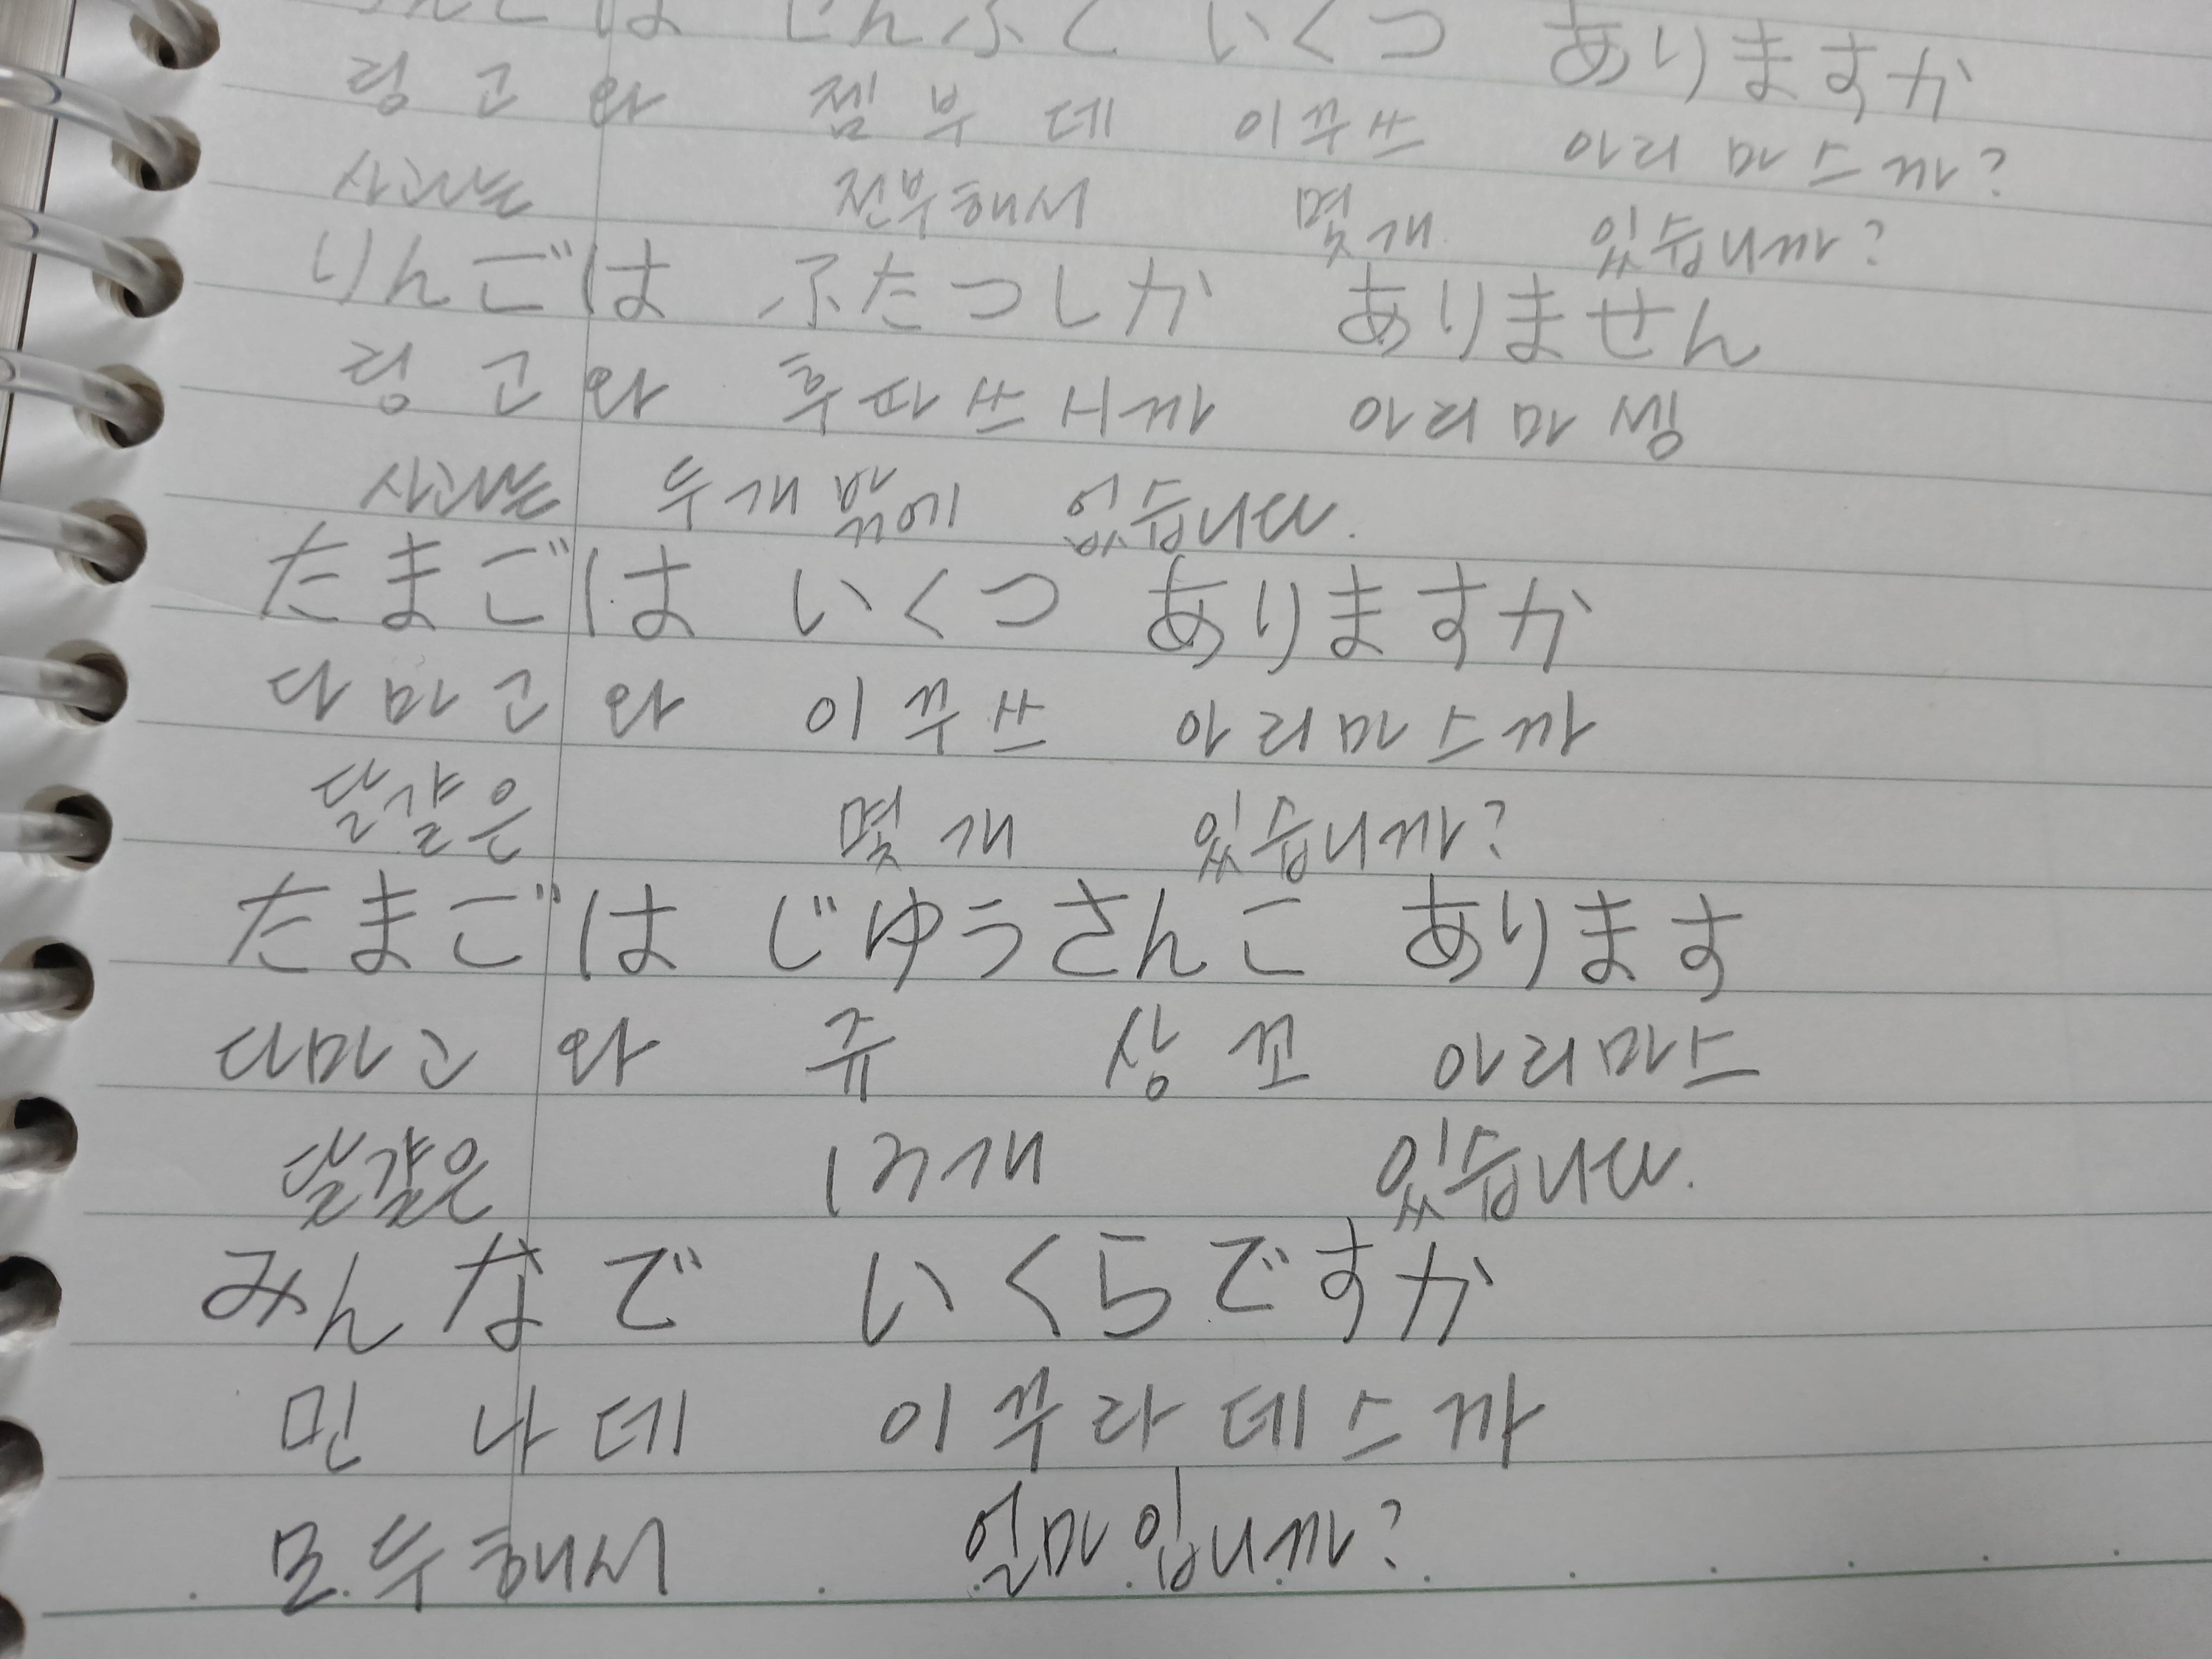 りんごは ぜんぶで いくつ ありますか
링고와 젬부데 이꾸쓰 아리마스까?
사과는 전부해서 몇개 있습니까?
りんごは ふたつしか ありません
링고와 후따쓰시까 아리마셍
사과는 두개밖에 없습니다.
たまごは いくつ ありますか
다마고와 이꾸쓰 아리마스까
달걀은 몇개 있습니까?
たまごは じゆうさんこ あります
다마고와 쥬 상꼬 아리마스
달걀은 13개 있습니다.
みんなで いくらですか
민나데 이꾸라데스까
모두해서 얼마입니까?